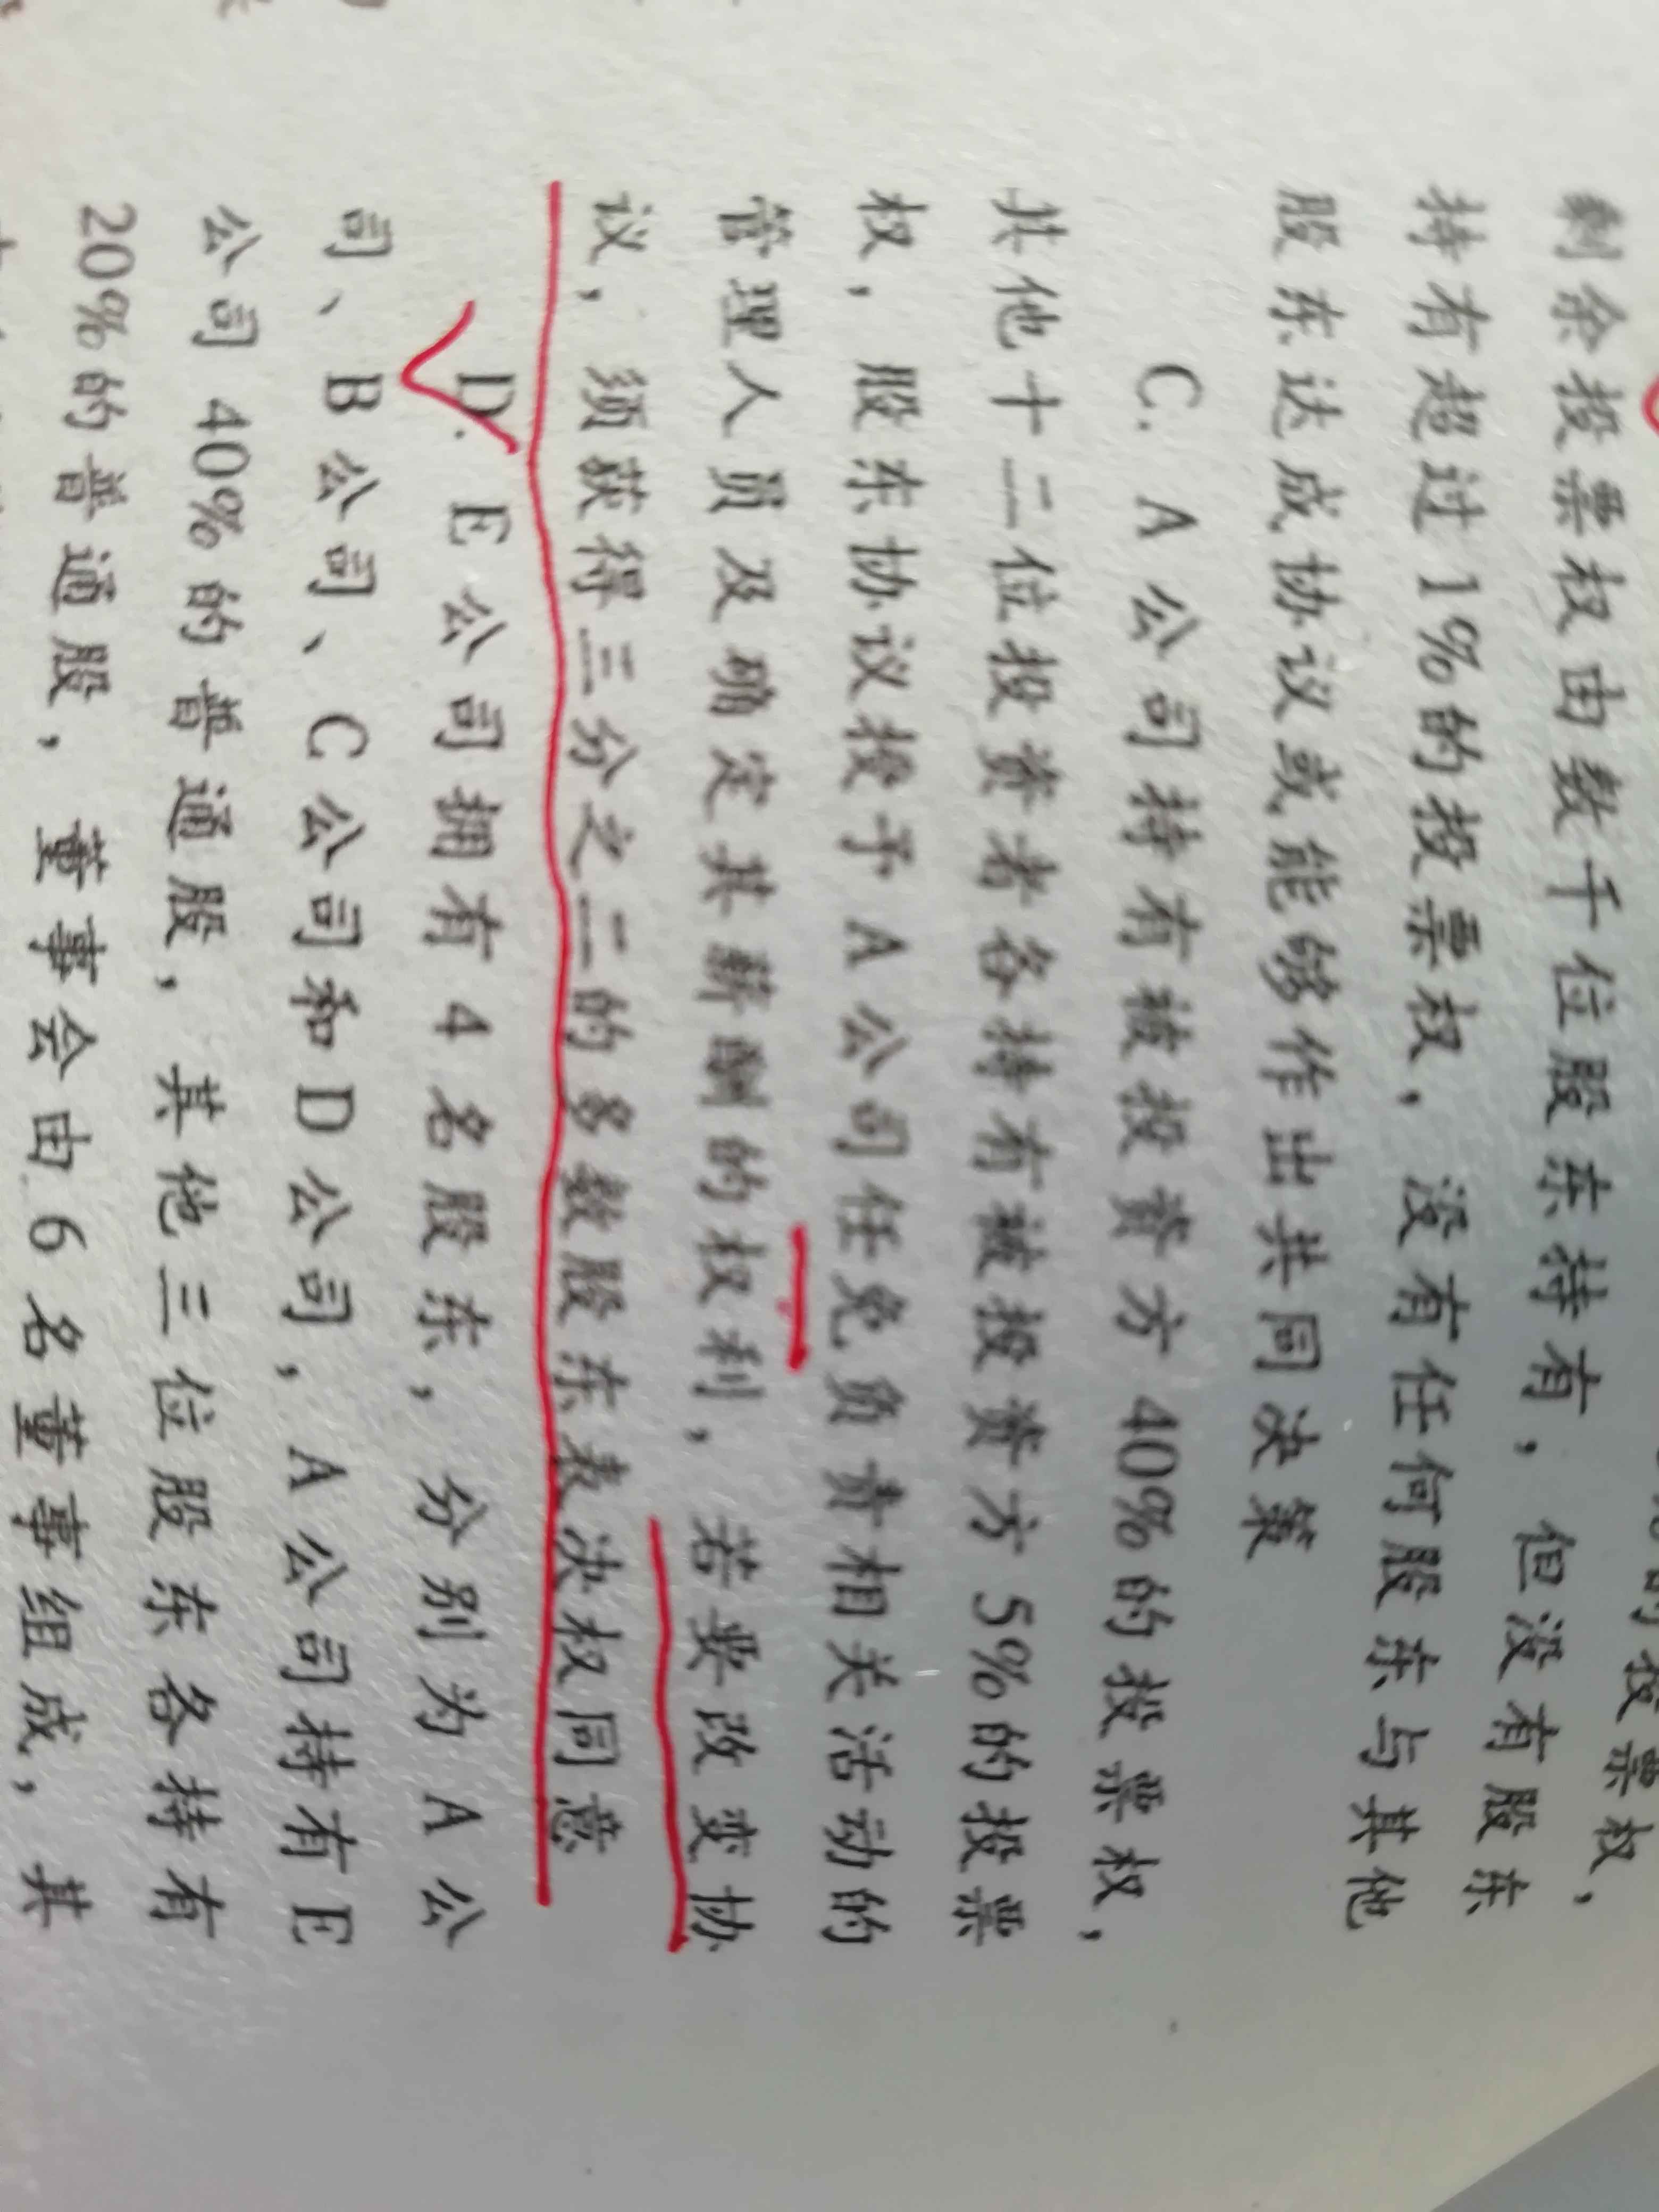 的投票权，
剩余投票权由数千位股东持有，但没有股东
持有超过1%的投票权，没有任何股东与其他
股东达成协议或能够作出共同决策
C. A公司持有被投资方40%的投票权，
其他十二位投资者各持有被投资方5%的投票
权，股东协议授予A公司任免负责相关活动的
管理人员及确定其薪酬的权利，若要改变协
议，须获得三分之二的多数股东表决权同意
D. E公司拥有4名股东，分别为A公
司、B公司、C公司和D公司，A公司持有E
公司40%的普通股，其他三位股东各持有
20%的普通股，董事会由6名董事组成，其